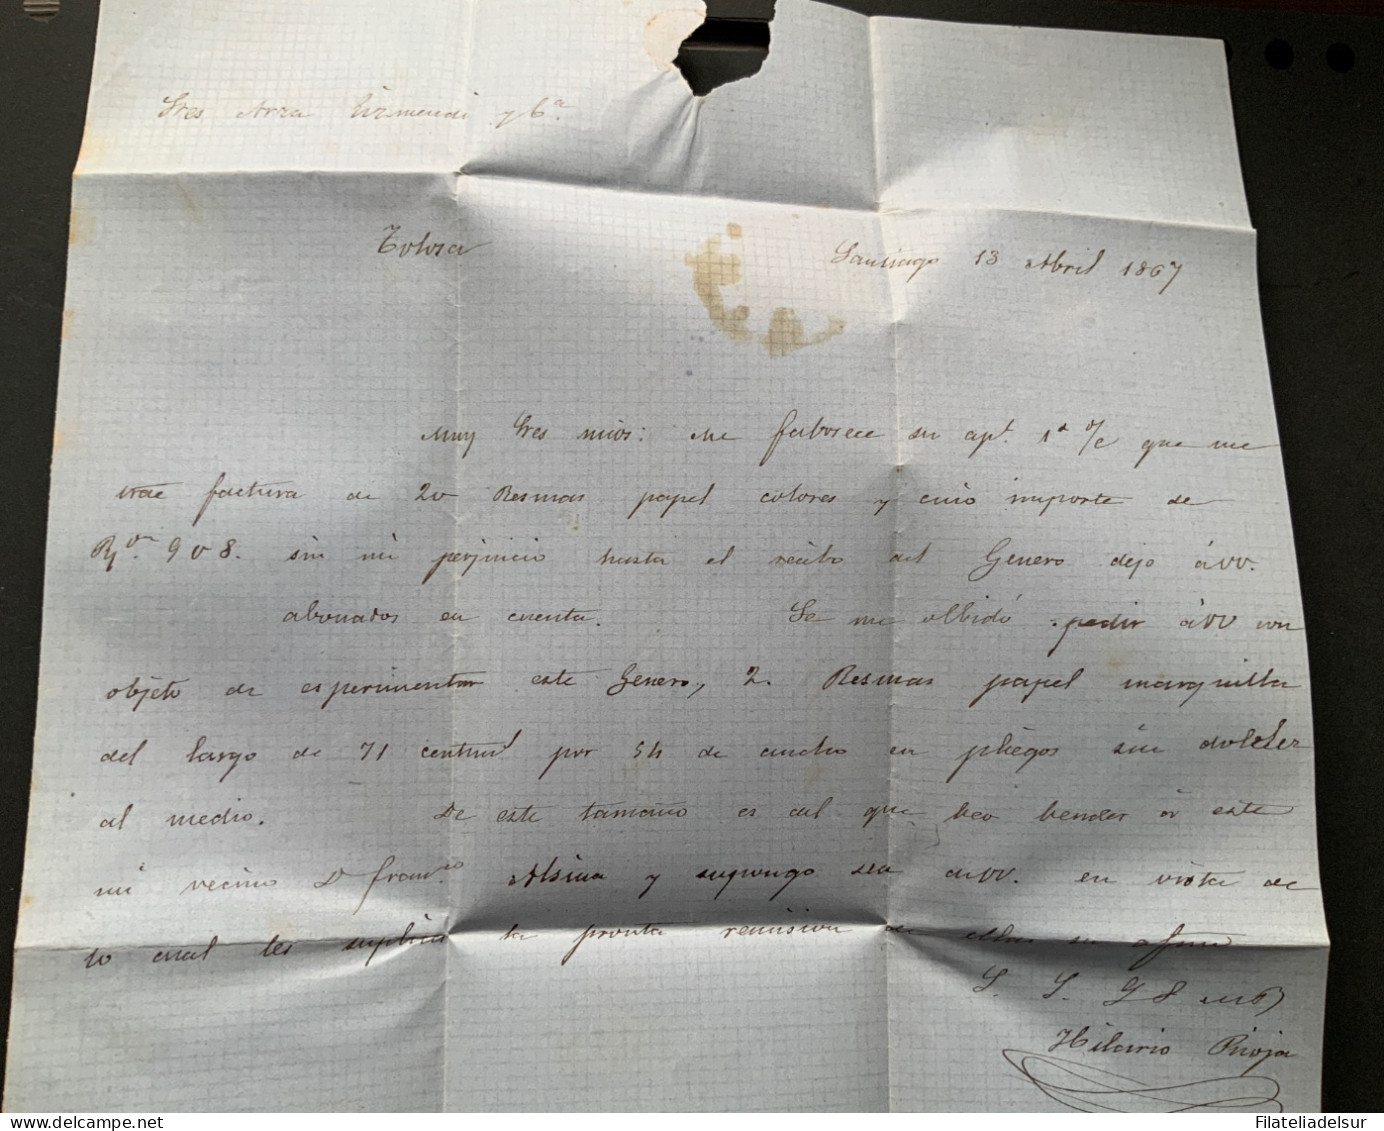 Sres Arza Eizmendi y Cª
Tolosa
Santiago 13 Abril 1867
Muy Sres mios: Me faborece su apt. 1º o/c que me
trae factura de 20 Resmas papel colores y cuio importe de
Rs von 908. sin mi perjuicio hasta el recibo del Genero dejo á VV.
abonados en cuenta. Se me olbidó pedir á VV con
objeto de esperimentar este Genero, 2. Resmas papel marquilla
del largo de 71 centimd por 54 de ancho en pliegos sin doblar
al medio. De este tamaño es del que beo bender á este
mi vecino Dn Franco Alsina y supongo sea de VV. en vista de
lo cual les suplico la pronta remision de ellas su afmo
S. S. Q B SM
Hilario Rioja
Filateliadelsur.com